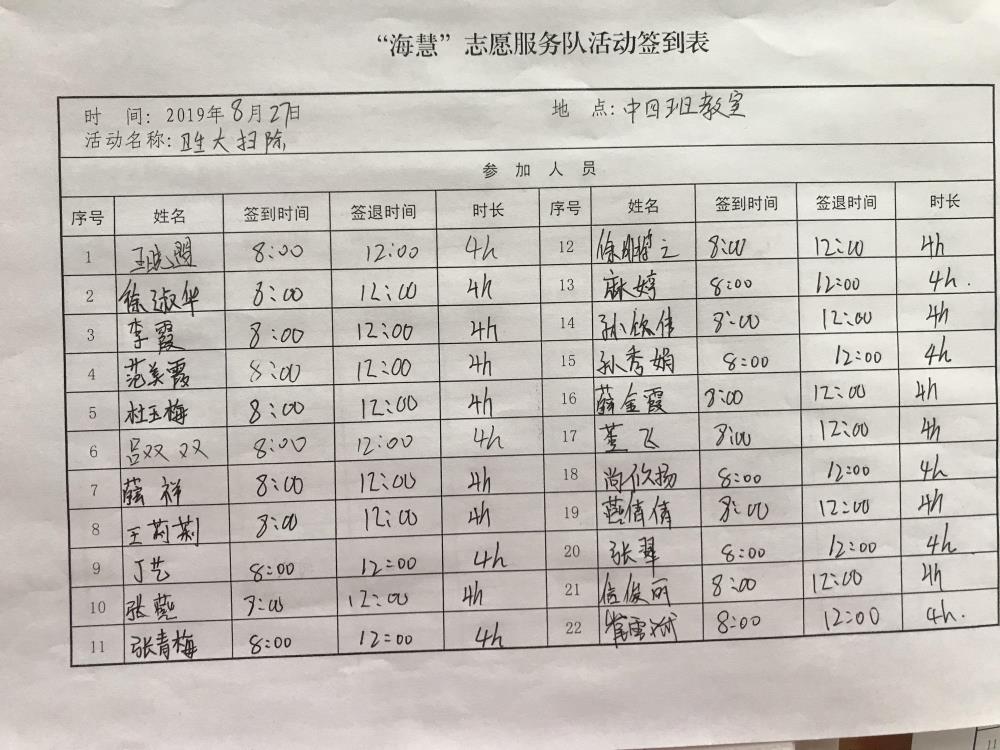 “海慧”志愿服务队活动签到表
时 间: 2019年8月27日 地 点: 中四班教室
活动名称: 卫生大扫除
参 加 人 员
序号 姓名 签到时间 签退时间 时长 序号 姓名 签到时间 签退时间 时长
1 王晓盟 8:00 12:00 4h 12 徐明 之 8:00 12:00 4h
2 徐淑华 8:00 12:00 4h 13 麻婷 8:00 12:00 4h.
3 李霞 8:00 12:00 4h 14 孙欣佳 8:00 12:00 4h
4 范美霞 8:00 12:00 4h 15 孙秀娟 8:00 12:00 4h
5 杜玉梅 8:00 12:00 4h 16 薛金霞 8:00 12:00 4h
6 吕双双 8:00 12:00 4h 17 董飞 8:00 12:00 4h
7 薛祥 8:00 12:00 4h 18 尚欣扬 8:00 12:00 4h
8 王莉莉 8:00 12:00 4h 19 倩倩 8:00 12:00 4h
9 丁艺 8:00 12:00 4h 20 张翠 8:00 12:00 4h
10 张 8:00 12:00 4h 21 信俊丽 8:00 12:00 4h
11 张青梅 8:00 12:00 4h 22 8:00 12:00 4h.